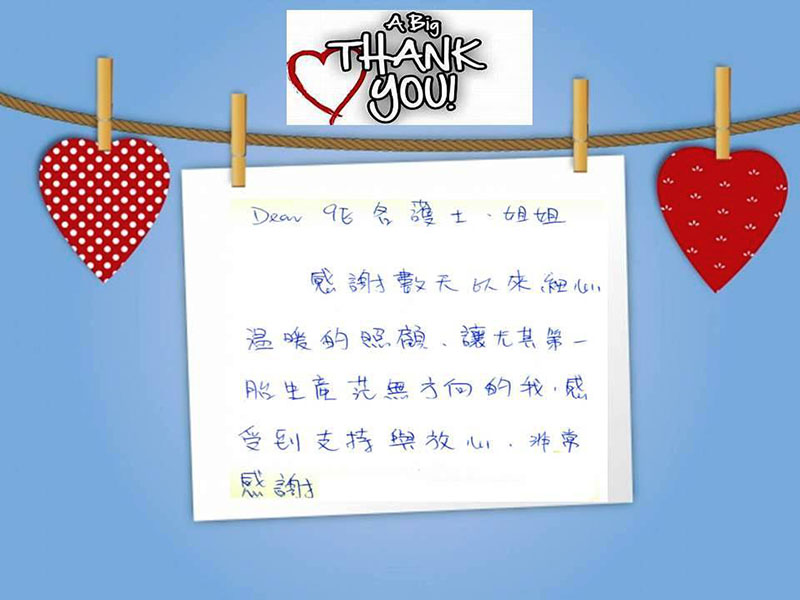 A Big
THANK
YOU!
Dear 9E 各護士、姐姐
感謝數天以來細心
溫暖的照顧、讓尤其第一
胎生產茫無方向的我,感
受到支持與放心、非常
感謝